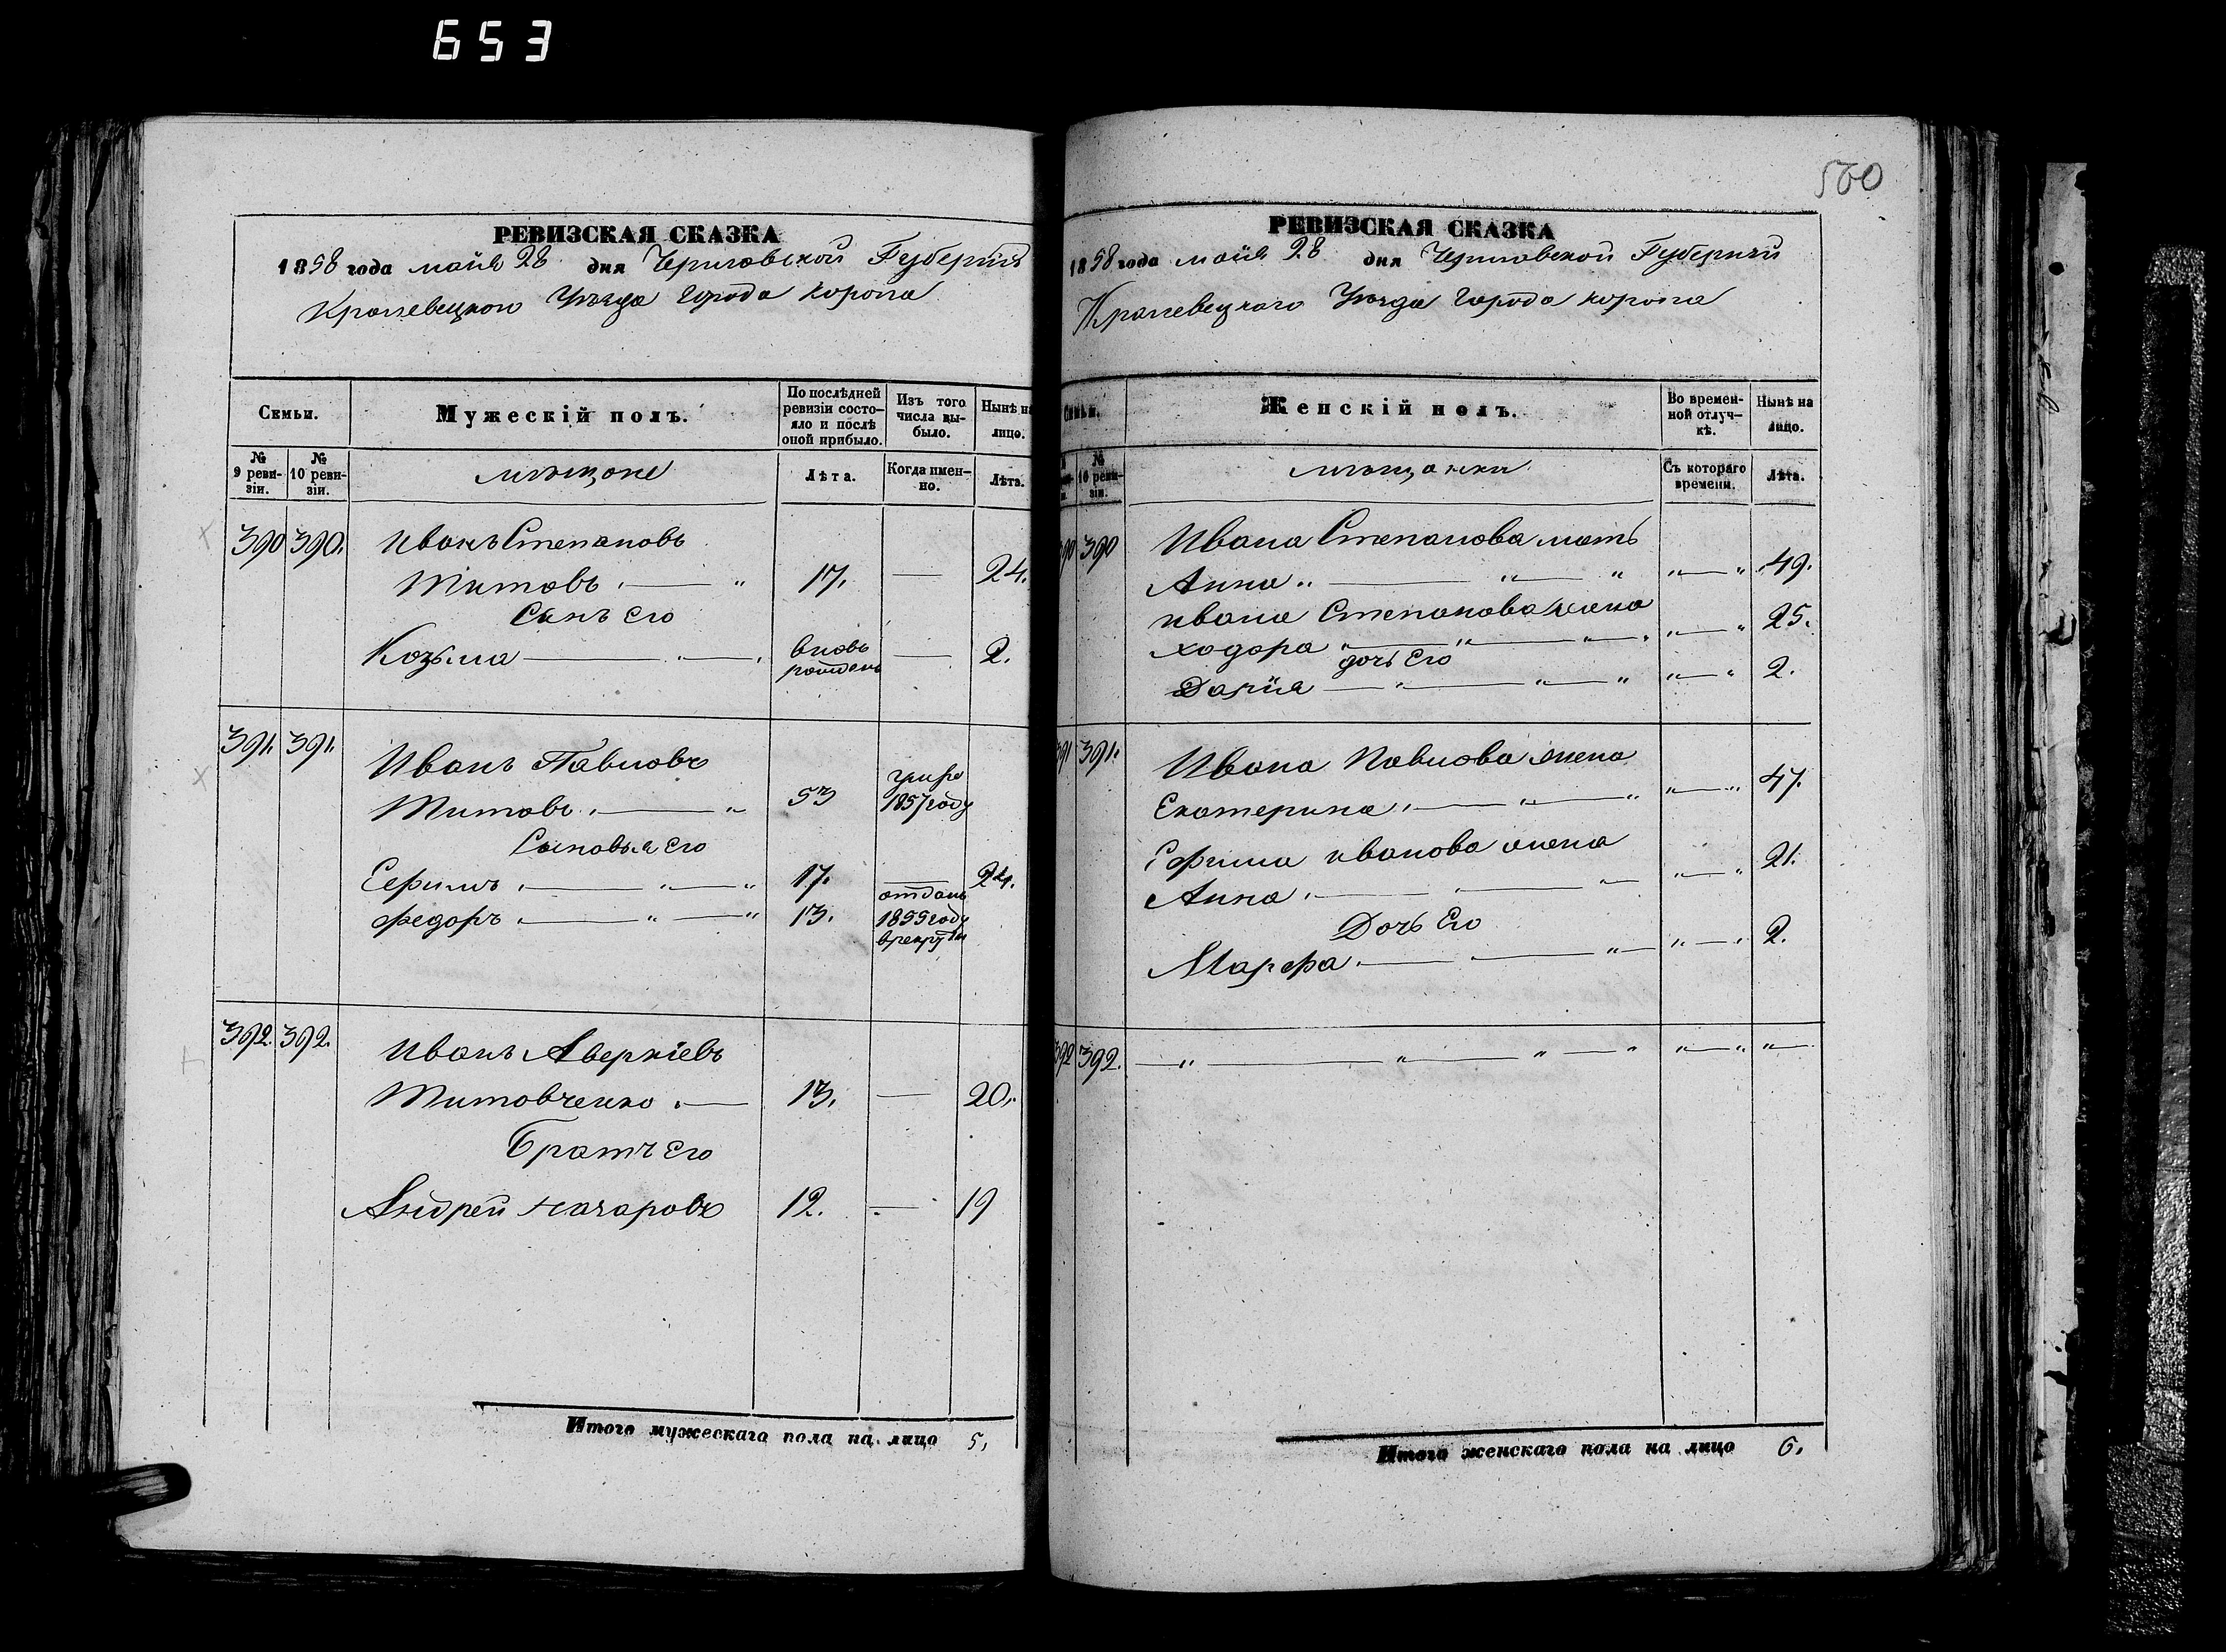 653
560
РЕВИЗСКАЯ СКАЗКА
1858 года майя 28 дня Черниговской Губерніи
Кролевецкого Уезда Города Коропа
Семьи.
Мужескій полъ.
По послѣдней ревизіи состояло и послѣ оной прибыло.
Изъ того числа выбыло.
Нынѣ на лицо.
№ 9 ревизіи.
№ 10 ревизіи.
мѣщане
Лѣта.
Когда именно.
Лѣта.
390 390. Иванъ Степановъ
Титовъ 17. — 24.
Сынъ Его
Козьма вновь рожденъ — 2.
391. 391. Иванъ Павловъ
Титовъ 53 1857 году
Сыновья Его
Ефимъ 17. — 24.
Федоръ 13. отданъ 1855 году в рекруты
392. 392. Иванъ Аверкіевъ
Титовченко 13. — 20.
Братъ Его
Андрей 12. — 19
Итого мужескаго пола на лицо 5.
РЕВИЗСКАЯ СКАЗКА
1858 года майя 28 дня Черниговской Губерніи
Кролевецкаго Уезда Города Коропа
Семьи.
Женскій полъ.
Во временной отлучкѣ.
Нынѣ на лицо.
№ 10 ревизіи.
мѣщанки
Съ котораго времени.
Лѣта.
390 390 Ивана Степанова мать
Анна 49.
Ивана Степанова жена
Ходора 25.
дочь Его
Дарія 2.
391 391. Ивана Павлова жена
Екатерина 47.
Ефима Иванова жена
Анна 21.
Дочь Его
Марфа 2.
392 392.
Итого женскаго пола на лицо 6.